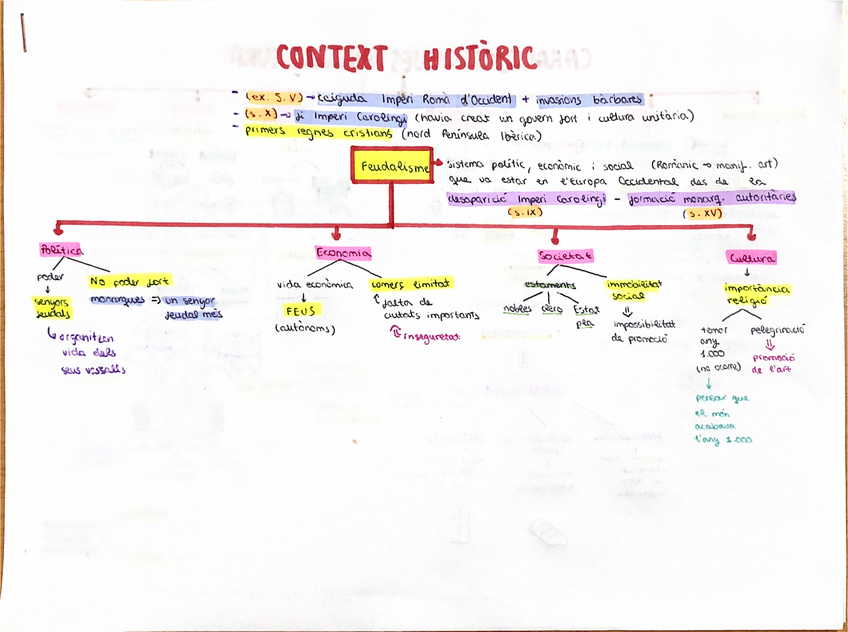 CONTEXT HISTÒRIC
- (ex. S.V) → caiguda Imperi Romà d'Occident + invasions bàrbares
- (s.X) → fi Imperi Carolingi (havia creat un govern fort i cultura unitària)
- primers regnes cristians (nord Península Ibèrica)
Feudalisme → sistema polític, econòmic i social (Romànic → manif. art)
que va estar en l'Europa Occidental des de la
desaparició Imperi Carolingi - formació monarq. autoritàries
(s.IX) (s. XV)
Política
poder
↓
senyors
feudals
organitzen
vida dels
seus vassalls
No poder fort
monarques => un senyor
feudal més
Economia
vida econòmica
↓
FEUS
(autònoms)
comerç limitat
↑ falta de
ciutats importants
⇑ inseguretat
Societat
estaments
nobles clero Estat
pla
immobilitat
social
⇓
impossibilitat
de promoció
Cultura
importància
religió
temor
any
1.000
(no ocorre)
↓
pensar que
el món
acabava
l'any 1.000
pelegrinació
⇓
promoció
de l'art